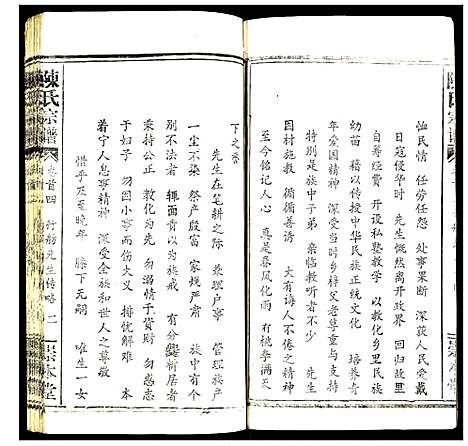 恤民情 任勞任怨 处事果断 深获人民爱戴
日寇侵华时 先生慨然离开政界 回归故里
自筹经费 开设私塾教学 以教化乡里民family
幼苗 藉以传授中华民族正统文化 培养青
年爱国精神 深受当时乡梓父老尊重与支持
特别是族中子弟 亲临教听者不少 先生
因材施教 循循善诱 大有诲人不倦之精神
至今铭记人心 真是春风化雨 有桃李满天
下之誉
先生在笔耕之际 兼理户事 管理族产
一尘不染 祭产殷富 家规严肃 族中有个
别不法者 辄面责以为族戒 有分爨析居者
秉持公正 教化为先 勿溺情于貨財 勿惑志
于妇子 勿因小事而伤大义 排忧解难 本
着宁人息事精神 深受全族和世人之尊敬
惜乎及至晚年 膝下无嗣 唯生一女
陳氏宗譜
卷首四
行舫先生传略 二